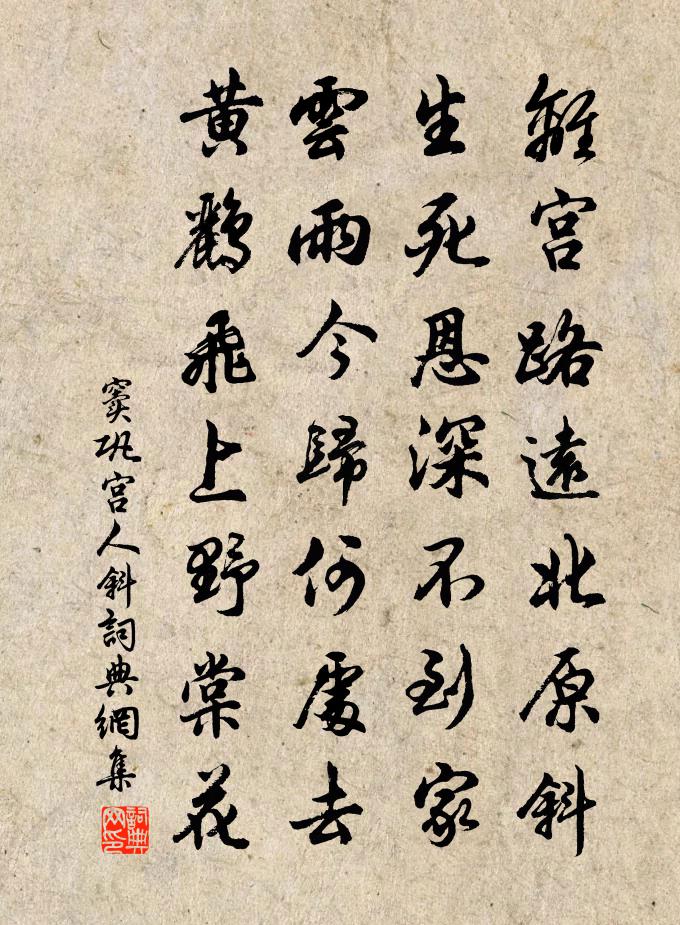 離宮路遠北原斜
生死恩深不到家
雲雨今歸何處去
黃鸝飛上野棠花
竇巩宮人斜詞典網集
詞典網印